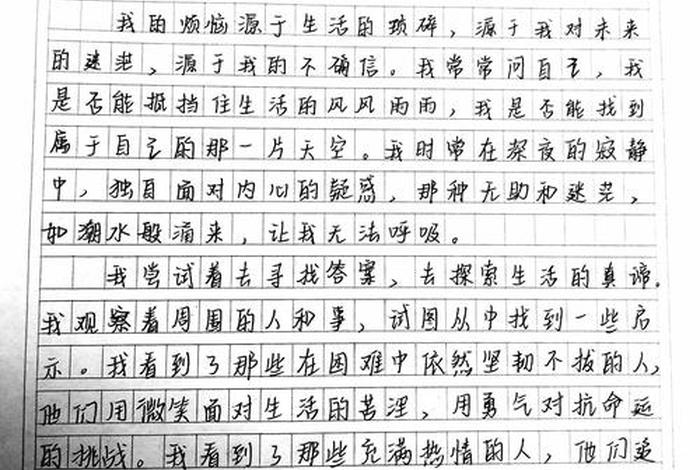 我的烦恼源于生活的琐碎，源于我对未来
的迷茫，源于我的不确信。我常常问自己，我
是否能抵挡住生活的风风雨雨，我是否能找到
属于自己的那一片天空。我时常在深夜的寂静
中，独自面对内心的疑惑，那种无助和迷茫，
如潮水般涌来，让我无法呼吸。
我尝试着去寻找答案，去探索生活的真谛。
我观察着周围的人和事，试图从中找到一些启
示。我看到了那些在困难中依然坚韧不拔的人，
他们用微笑面对生活的苦涩，用勇气对抗命运
的挑战。我看到了那些充满热情的人，他们追